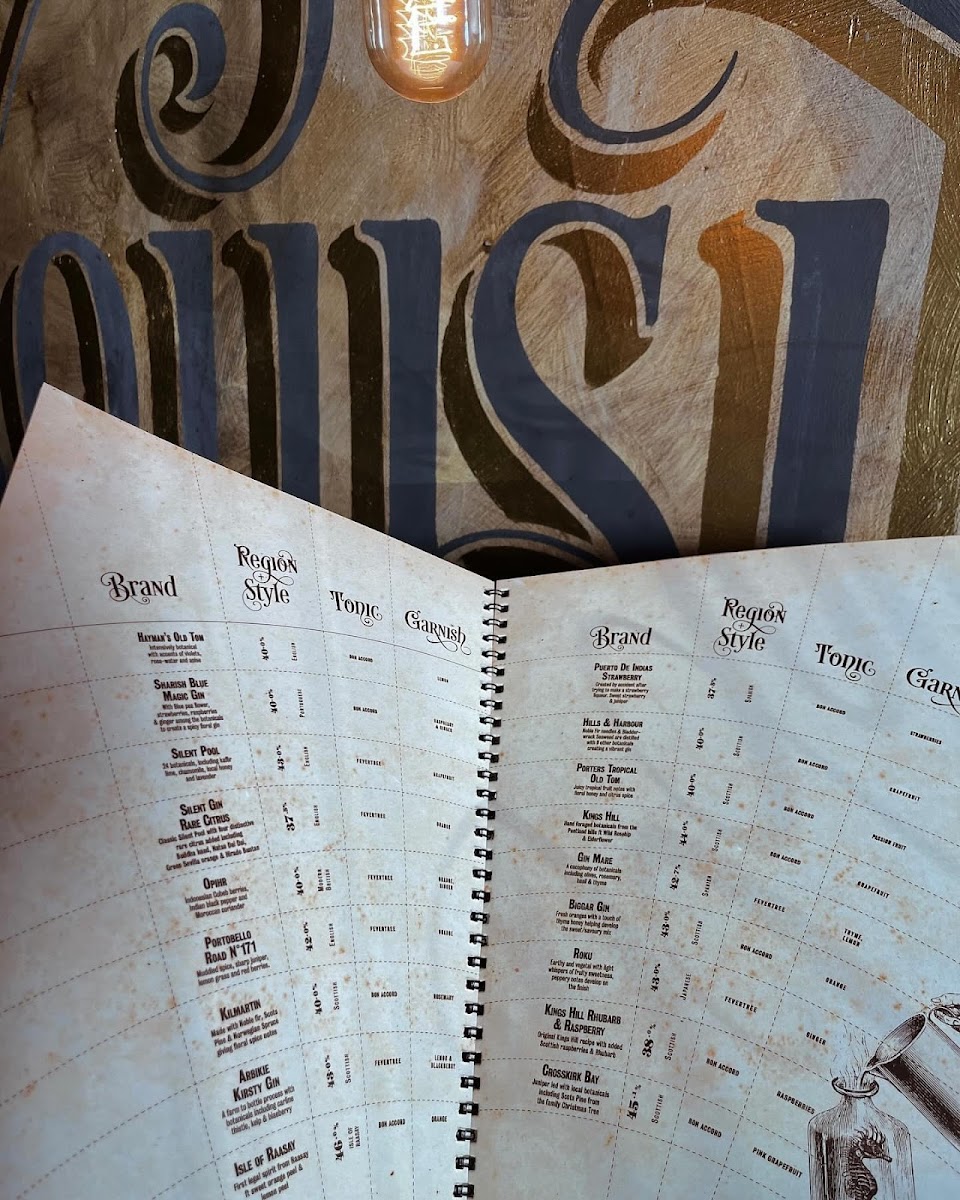 OUIST
Brand
Region
+
Style
Tonic
Garnish
Hayman's Old Tom
Intensively botanical
with accents of violets,
rose-water and anise
40·0%
English
Bon Accord
Lemon
Sharish Blue
Magic Gin
With Blue pea flower,
strawberries, raspberries
& ginger among the botanicals
to create a spicy floral gin
40·0%
Portuguese
Bon Accord
Raspberry
& Ginger
Silent Pool
24 botanicals, including kaffir
lime, chamomile, local honey
and lavender
43·0%
English
Fevertree
Grapefruit
Silent Gin
Rare Citrus
Classic Silent Pool with four distinctive
rare citrus added including
Buddha hand, Natsu Dai Dai,
Green Seville orange & Hirado Buntan
37·5%
English
Fevertree
Orange
Opihr
Indonesian Cubeb berries,
Indian black pepper and
Moroccan coriander
40·0%
Modern
British
Fevertree
Orange,
Ginger
Portobello
Road N°171
Muddled spice, sharp juniper,
lemon grass and red berries.
42·0%
English
Fevertree
Orange
Kilmartin
Made with Noble fir, Scots
Pine & Norwegian Spruce
giving floral spice notes
40·0%
Scottish
Bon Accord
Rosemary
Arbikie
Kirsty Gin
A farm to bottle process with
botanicals including carline
thistle, kelp & blaeberry
43·0%
Scottish
Fevertree
Lemon &
Blueberry
Isle of Raasay
First legal spirit from Raasay
ft sweet orange peel &
lemon peel
46·0%
Isle of
Raasay
Bon Accord
Orange
Brand
Region
+
Style
Tonic
Garn
Puerto De Indias
Strawberry
Created by accident after
trying to make a strawberry
liqueur. Sweet strawberry
& juniper
37·5%
Spanish
Bon Accord
Strawberries
Hills & Harbour
Noble Fir needles & Bladder-
wrack Seaweed are distilled
with 9 other botanicals
creating a vibrant gin
40·0%
Scottish
Bon Accord
Grapefruit
Porters Tropical
Old Tom
Juicy tropical fruit notes with
floral honey and citrus spice
40·0%
Scottish
Bon Accord
Passion Fruit
Kings Hill
Hand foraged botanicals from the
Pentland hills ft Wild Rosehip
& Elderflower
44·0%
Scottish
Bon Accord
Grapefruit
Gin Mare
A cacophony of botanicals
including olives, rosemary,
basil & thyme
42·7%
Spanish
Fevertree
Thyme,
Lemon
Biggar Gin
Fresh oranges with a touch of
thyme honey helping develop
the sweet/savoury mix
43·0%
Scottish
Bon Accord
Orange
Roku
Earthy and vegetal with light
whispers of fruity sweetness,
peppery notes develop on
the finish
43·0%
Japanese
Fevertree
Ginger
Kings Hill Rhubarb
& Raspberry
Original Kings Hill recipe with added
Scottish raspberries & Rhubarb
38·0%
Scottish
Bon Accord
Raspberries
Crosskirk Bay
Juniper led with local botanicals
including Scots Pine from
the family Christmas Tree
45·1%
Scottish
Bon Accord
Pink Grapefruit